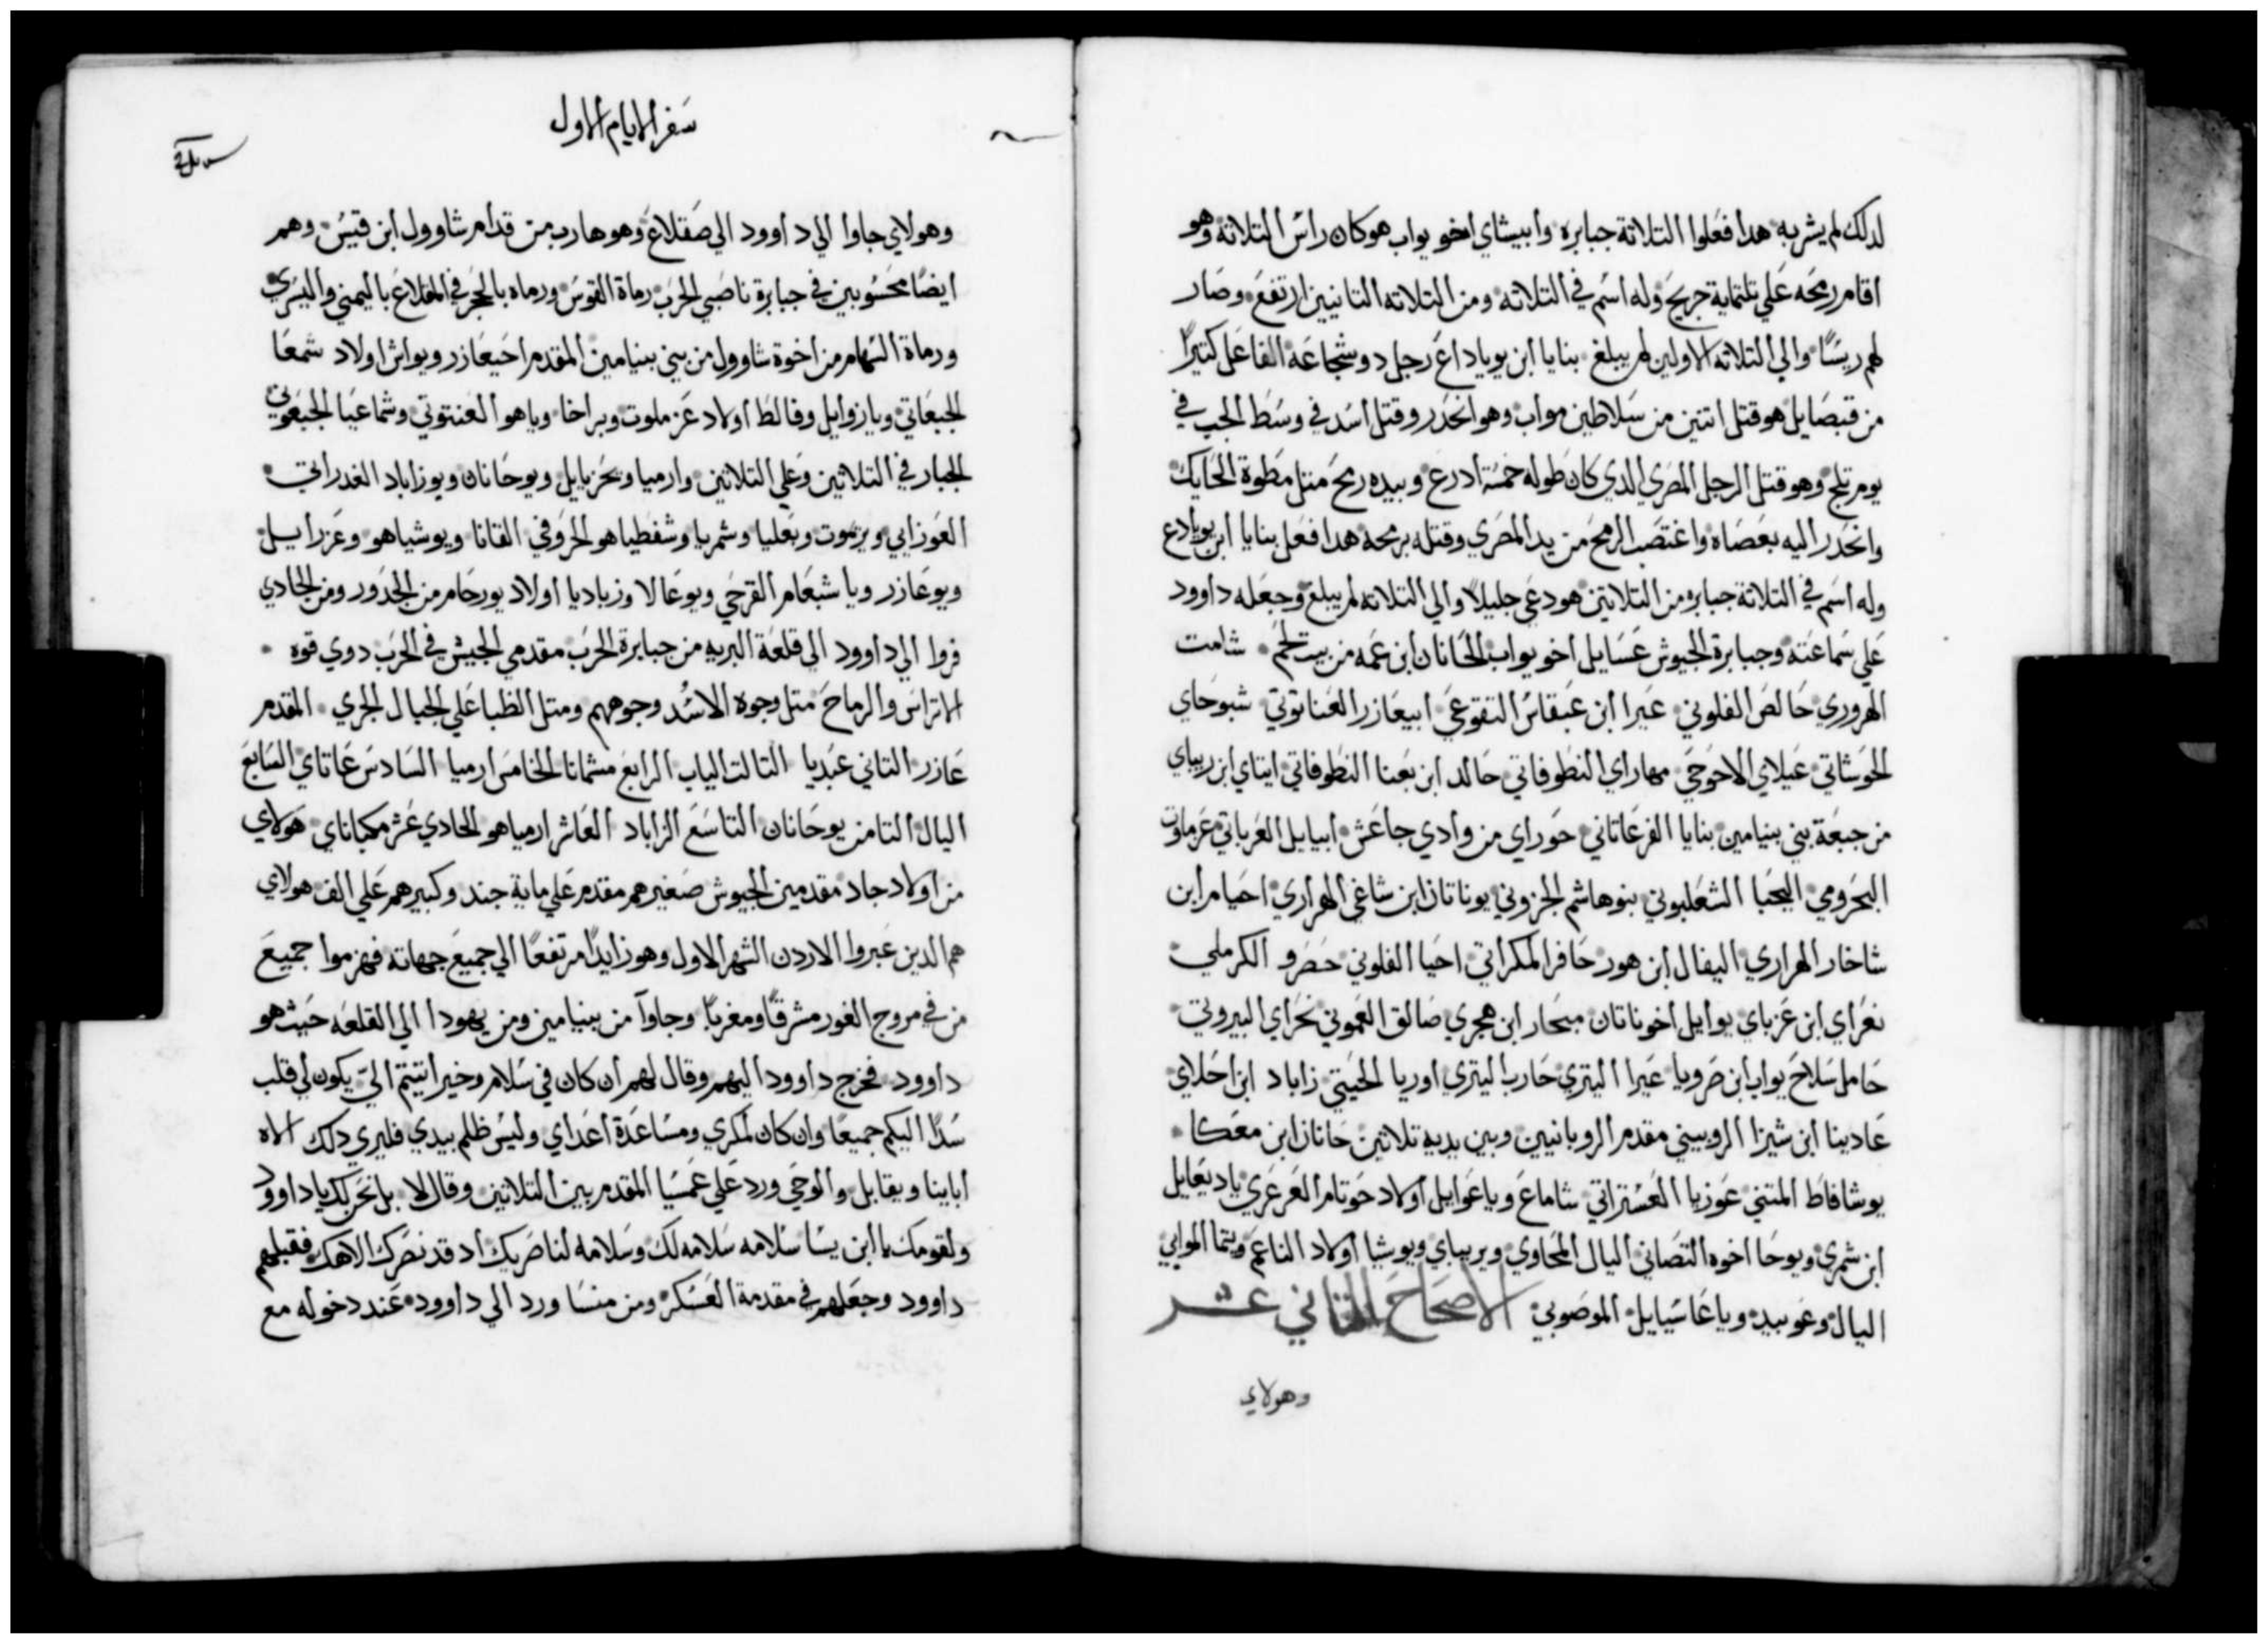 لدلك لم يشربه هدا فعلوا التلاتة جبابره وابيشاي اخو يواب هو كان راس التلاتة وهو
اقام رمحه علي تلتماية جريح وله اسم في التلاته ومن التلاته التانيين ارتفع وصار
لهم ريسًا والي التلاته الاولين لم يبلغ بنايا ابن يوياداع رجل دو شجاعه الفاعل كتيرًا
من قبصايل هو قتل اتنين من سلاطين مواب وهو انحدر وقتل اسد في وسط الجب في
يوم تلج وهو قتل الرجل المصري الدي كان طوله خمسة ادرع وبيده رمح متل مطوة الحايك
وانحدر اليه بعصاه واغتصب الرمح من يد المصري وقتله برمحه هدا فعل بنايا ابن يويادع
وله اسم في التلاتة جبابره من التلاتين هو دعي جليلاً والي التلاته لم يبلغ وجعله داوود
علي سماعته وجبابرة الجيوش عسايل اخو يواب الحانان ابن عمه من بيت لحم شامت
الهروري حالص الفلوني عيرا ابن عيقاس التقوعي ابيعازر العناتوتي شبوحاي
الحوشاتي عيلاي الاحوحي مهاراي النطوفاتي حالد ابن بعنا النطوفاتي ايتاي ابن ريباي
من جبعة بني بنيامين بنايا الفرعاتاني حوراي من وادي جاعش ابيايل العرباتي عزماوت
البحرومي اليحبا الشعلبوني بنو هاشم الجزوني يوناتان ابن شاغي الهراري احيام ابن
شاخار الهراري اليفال ابن هور حافر المكراتي احيا الفلوني حضرو الكرملي
نعراي ابن عزباي يوايل اخو ناتان مبحار ابن هجري صالق العموني نحراي البيروتي
حامل سلاح يواب ابن صرويا عيرا اليتري حارب اليتري اوريا الحيتي زاباد ابن احلاي
عادينا ابن شيزا الروبيني مقدم الروبانيين وبين يديه تلاتين حانان ابن معكا
يوشافاط المتني عوزيا العستراتي شاماع وياعوايل اولاد حوتام العرعري ياديعايل
ابن شمري ويوحا اخوه التصاني اليال المحاوي ويريباي ويوشيا اولاد الناعم ويتما الموابي
اليال وعوبيد وياعاسيايل الموصوبي الاصحاح التاني عشر
وهولاي
سفر الايام الاول
وهولاي جاوا الي داوود الي صقلاغ وهو هارب من قدام شاوول ابن قيس وهم
ايضًا محسوبين في جبابرة ناصبي الحرب رماة القوس ورماه بالحجر في المقلاع باليمني واليسري
ورماة السهام من اخوة شاوول من بني بنيامين المقدم احيعازر ويواش اولاد شمعا
الجبعاتي ويازوايل وفالط اولاد عزملوت وبراخا وياهو العنتوتي وشماعيا الجبعوني
الجبار في التلاتين وعلي التلاتين وارميا ويحزيايل ويوحانان ويوزاباد الغدراتي
العوزابي ويرموت وبعليا وشمريا وشفطياهو الحروفي القانا ويوشياهو وعزرايل
ويوعازر وياشبعام القرحي ويوعالا وزباديا اولاد يورحام من الجدور ومن الجادي
فروا الي داوود الي قلعة البريه من جبابرة الحرب مقدمي الجيش في الحرب دوي قوه
الاتراس والرماح متل وجوه الاسد وجوههم ومتل الظبا علي الجبال الجري المقدم
عازر التاني عبديا التالت الياب الرابع مشمانا الخامس ارميا السادس عاتاي السابع
اليال التامن يوحانان التاسع الزاباد العاشر ارمياهو الحادي عشر مكباناي هولاي
من اولاد جاد مقدمين الجيوش صغيرهم مقدم علي ماية جند وكبيرهم علي الف هولاي
هم الدين عبروا الاردن الشهر الاول وهو زايدًا مرتفعًا الي جميع جهاته فهزموا جميع
من في مروج الغور مشرقًا ومغربًا وجاوآ من بنيامين ومن يهودا الي القلعه حيث هو
داوود فخرج داوود اليهم وقال لهم ان كان في سلام وخير انيتم الي يكون لي قلب
سدًا اليكم جميعًا وان كان لمكري ومساعدة اعداي وليس ظلم بيدي فليري دلك الاه
ابايناويقابل والوحي ورد علي عمسيا المقدم بين التلاتين وقال لا بل نحن لك يا داوود
ولقومك يا ابن يسا سلامه سلامه لك وسلامه لناصريك اد قد نصرك الاهك فقبلهم
داوود وجعلهم في مقدمة العسكر ومن منسا ورد الي داوود عند دخوله مع